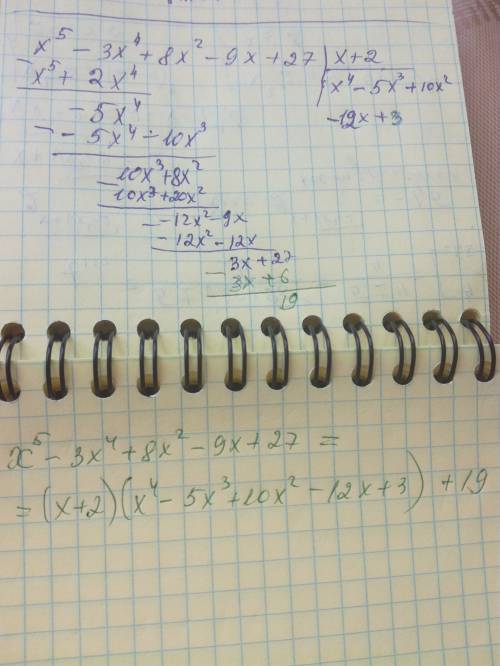 x⁵ - 3x⁴ + 8x² - 9x + 27 | x + 2
- x⁵ + 2x⁴
x⁴ - 5x³ + 10x²
- 12x + 3
- 5x⁴
- - 5x⁴ - 10x³
10x³ + 8x²
- 10x³ + 20x²
- 12x² - 9x
- - 12x² - 12x
3x + 27
- 3x + 6
19
x⁵ - 3x⁴ + 8x² - 9x + 27 =
= (x+2)(x⁴ - 5x³ + 10x² - 12x + 3) + 19